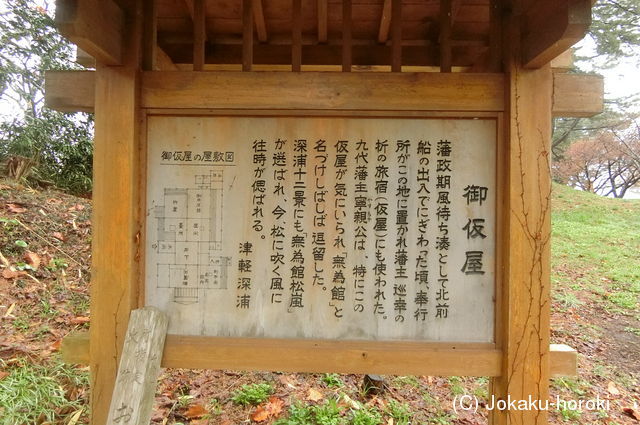 御仮屋
藩政期風待ち湊として北前
船の出入でにぎわった頃、奉行
所がこの地に置かれ藩主巡幸の
折の旅宿(仮屋)にも使われた。
九代藩主寧親公は、特にこの
仮屋が気にいられ「無為館」と
名づけしばしば逗留した。
深浦十二景にも「無為館松嵐」
が選ばれ、今、松に吹く風に
往時が偲ばれる。
津軽深浦
御仮屋の屋敷図
(C) Jokaku-horoki